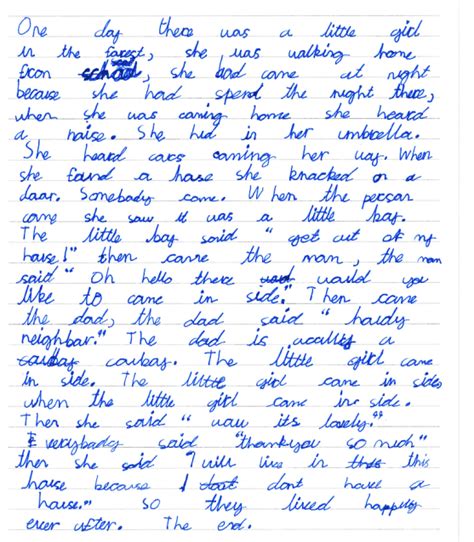 One day there was a little girl
in the forest, she was walking home
from school, she had come at night
because she had spend the night there,
when she was coming home she heard
a noise. She hid in her umbrella.
She heard cars coming her way. When
she found a house she knocked on a
door. Somebody came. When the person
came she saw it was a little boy.
The little boy said "get out of my
house!" then came the man, the man
said "Oh hello there would you
like to came in side." Then came
the dad, the dad said "howdy
neighbor." The dad is acully a
cowboy. The little girl came
in side. The little girl came in side
when the little girl came in side.
Then she said "wow its lovely."
Everybody said "thankyou so much"
then she said I will live in this
house because I dont have a
house." SO they lived happily
ever after. The end.